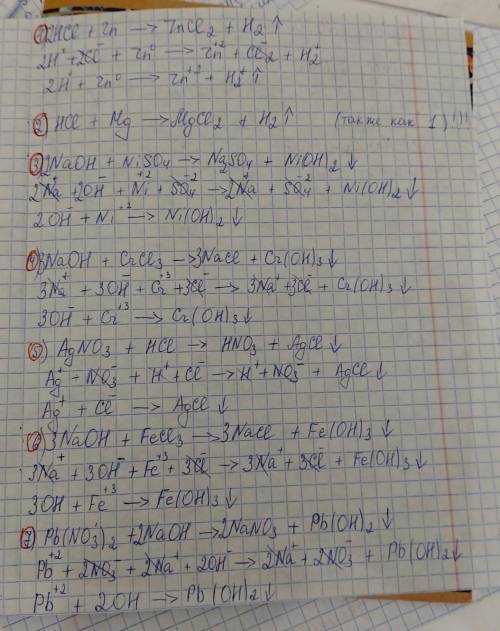 1) 2HCl + Zn → ZnCl2 + H2↑
2H⁺ + 2Cl⁻ + Zn⁰ → Zn⁺² + Cl⁻2 + H2↑
2H⁺ + Zn⁰ → Zn⁺² + H2↑
2) HCl + Mg → MgCl2 + H2↑ (так же как 1)!!!
3) 2NaOH + NiSO4 → Na2SO4 + Ni(OH)2↓
2Na⁺ + 2OH⁻ + Ni⁺² + SO4⁻² → 2Na⁺ + SO4⁻² + Ni(OH)2↓
2OH + Ni⁺² → Ni(OH)2↓
4) 3NaOH + CrCl3 → 3NaCl + Cr(OH)3↓
3Na⁺ + 3OH⁻ + Cr⁺³ + 3Cl⁻ → 3Na⁺ + 3Cl⁻ + Cr(OH)3↓
3OH⁻ + Cr⁺³ → Cr(OH)3↓
5) AgNO3 + HCl → HNO3 + AgCl↓
Ag⁺ - NO3⁻ + H⁺ + Cl⁻ → H⁺ + NO3⁻ + AgCl↓
Ag⁺ + Cl⁻ → AgCl↓
6) 3NaOH + FeCl3 → 3NaCl + Fe(OH)3↓
3Na⁺ + 3OH⁻ + Fe⁺³ + 3Cl⁻ → 3Na⁺ + 3Cl⁻ + Fe(OH)3↓
3OH + Fe⁺³ → Fe(OH)3↓
7) Pb(NO3)2 + 2NaOH → 2NaNO3 + Pb(OH)2↓
Pb⁺² + 2NO3⁻ + 2Na⁺ + 2OH⁻ → 2Na⁺ + 2NO3⁻ + Pb(OH)2↓
Pb⁺² + 2OH → Pb(OH)2↓